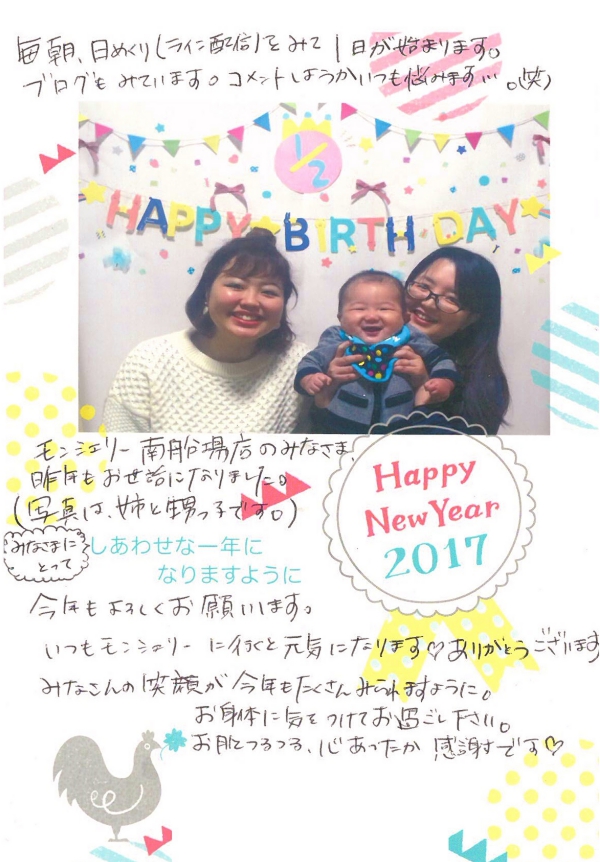 毎朝、日めくり(ライン配信)をみて1日が始まります。
ブログもみています。コメントしようかいつも悩みます…。(笑)
1/2
HAPPY BIRTHDAY
モンシェリー南船場店のみなさま、
昨年もお世話になりました。
(写真は、姉と甥っ子です。)
Happy
New Year
2017
みなさまに
とって
しあわせな一年に
なりますように
今年もよろしくお願いします。
いつもモンシェリーに行くと元気になります♡ありがとうございます
みなさんの笑顔が今年もたくさんみられますように。
お身体に気をつけてお過ごし下さい。
お肌つるつる、心あったか 感謝です♡